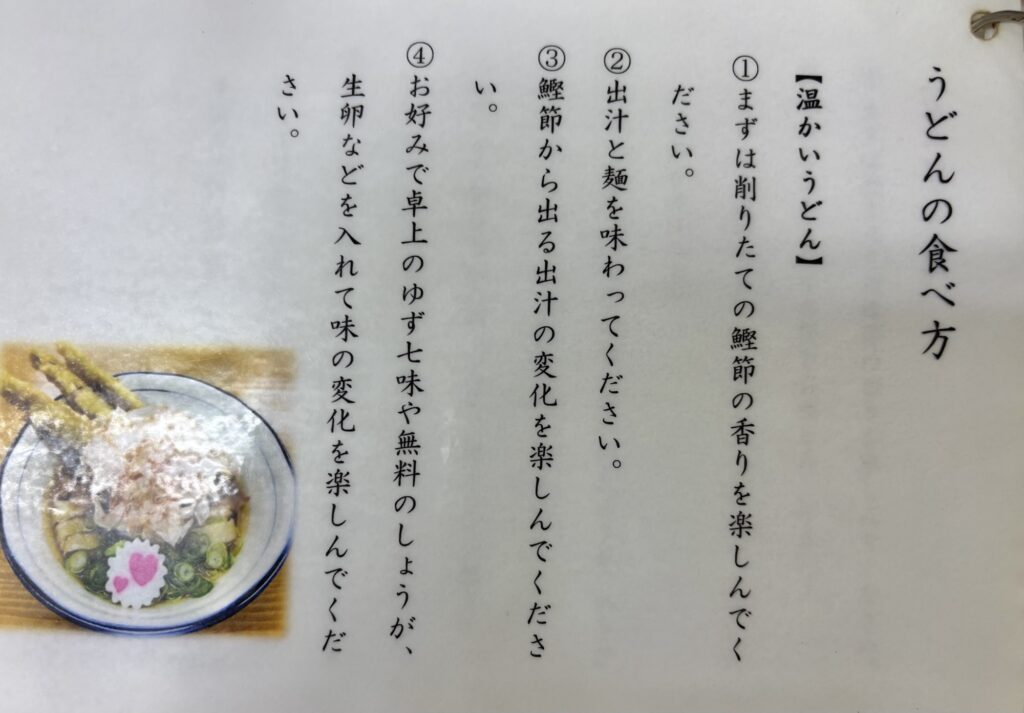 うどんの食べ方
【温かいうどん】
①まずは削りたての鰹節の香りを楽しんでく
ださい。
②出汁と麺を味わってください。
③鰹節から出る出汁の変化を楽しんでくださ
い。
④お好みで卓上のゆず七味や無料のしょうが、
生卵などを入れて味の変化を楽しんでくだ
さい。